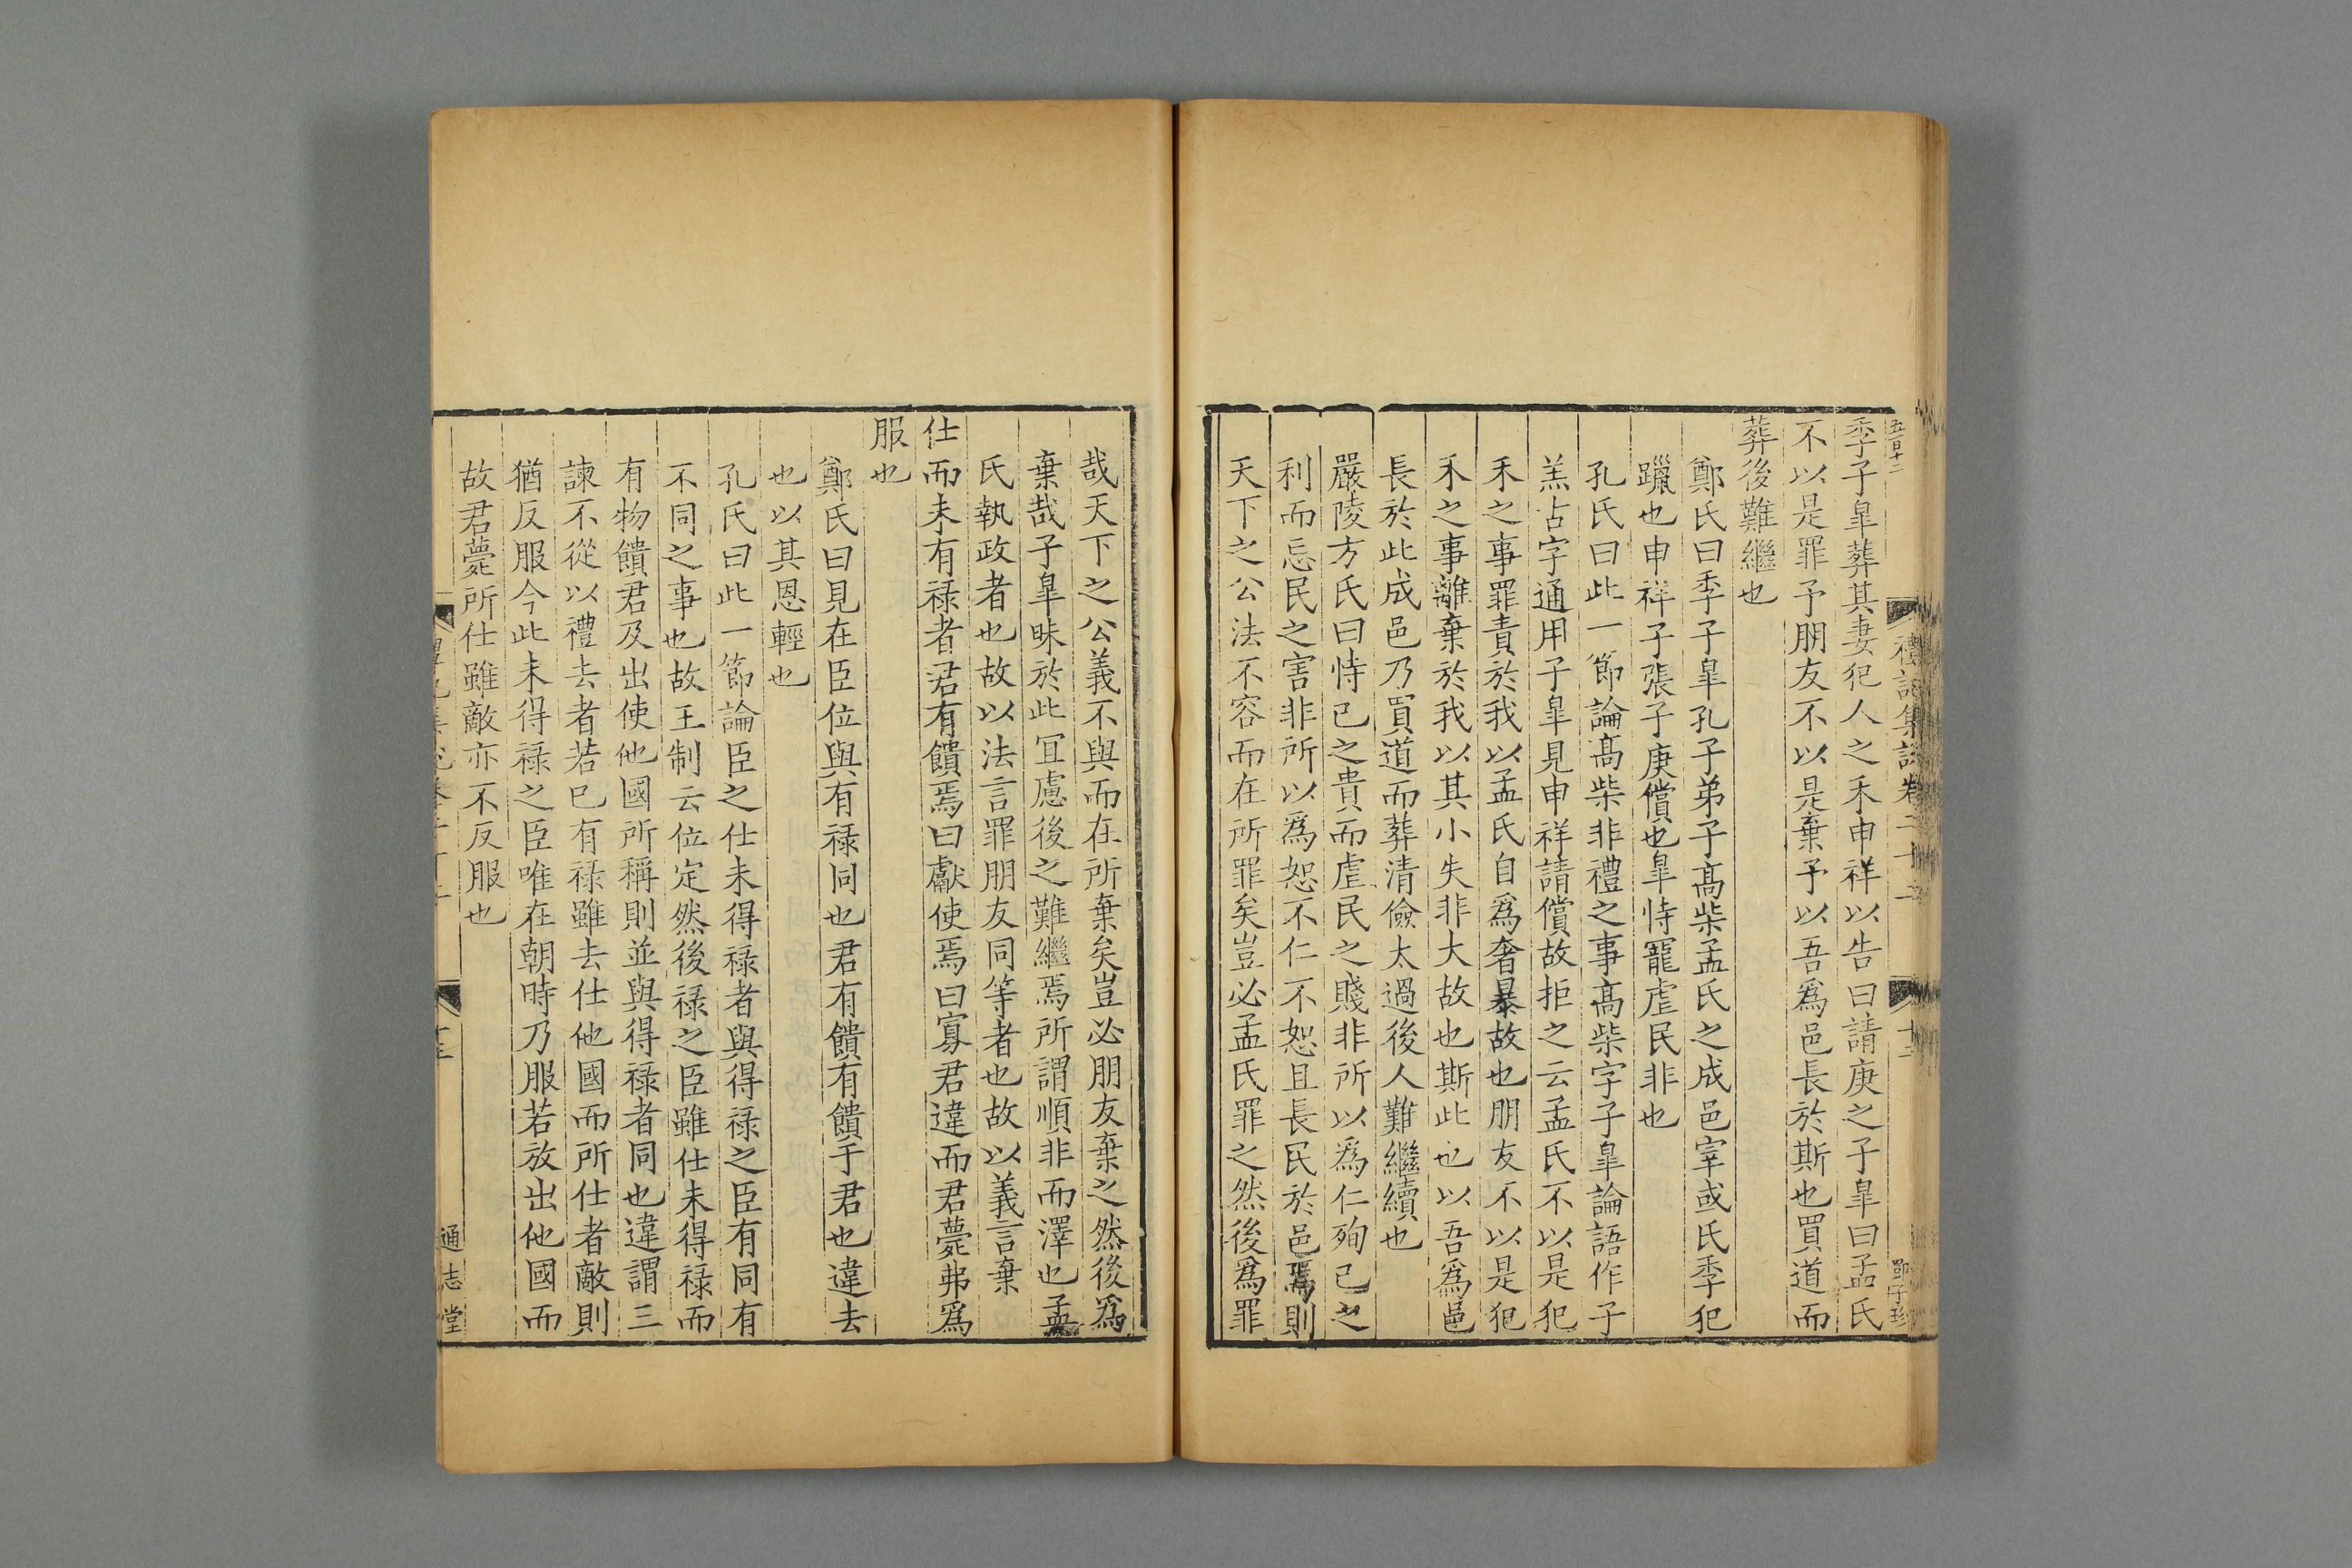 季子臯葬其妻犯人之禾申祥以告曰請庚之子臯曰孟氏
不以是罪予朋友不以是棄予以吾爲邑長於斯也買道而
葬後難繼也
鄭氏曰季子臯孔子弟子髙柴孟氏之成邑宰或氏季犯
躐也申祥子張子庚償也臯恃寵虐民非也
孔氏曰此一節論髙柴非禮之事髙柴字子臯論語作子
羔古字通用子臯見申祥請償故拒之云孟氏不以是犯
禾之事罪責於我以孟氏自爲奢暴故也朋友不以是犯
禾之事離棄於我以其小失非大故也斯此也以吾爲邑
長於此成邑乃買道而葬清儉太過後人難繼續也
嚴陵方氏曰恃己之貴而虐民之賤非所以爲仁殉己之
利而忘民之害非所以爲恕不仁不恕且長民於邑焉則
天下之公法不容而在所罪矣豈必孟氏罪之然後爲罪
哉天下之公義不與而在所棄矣豈必朋友棄之然後爲
棄哉子臯昧於此冝慮後之難繼焉所謂順非而澤也孟
氏執政者也故以法言罪朋友同等者也故以義言棄
仕而未有禄者君有饋焉曰獻使焉曰寡君違而君薨弗爲
服也
鄭氏曰見在臣位與有禄同也君有饋有饋于君也違去
也以其恩輕也
孔氏曰此一節論臣之仕未得禄者與得禄之臣有同有
不同之事也故王制云位定然後禄之臣雖仕未得禄而
有物饋君及出使他國所稱則並與得禄者同也違謂三
諫不從以禮去者若已有禄雖去仕他國而所仕者敵則
猶反服今此未得禄之臣唯在朝時乃服若放出他國而
故君薨所仕雖敵亦不反服也
通志堂